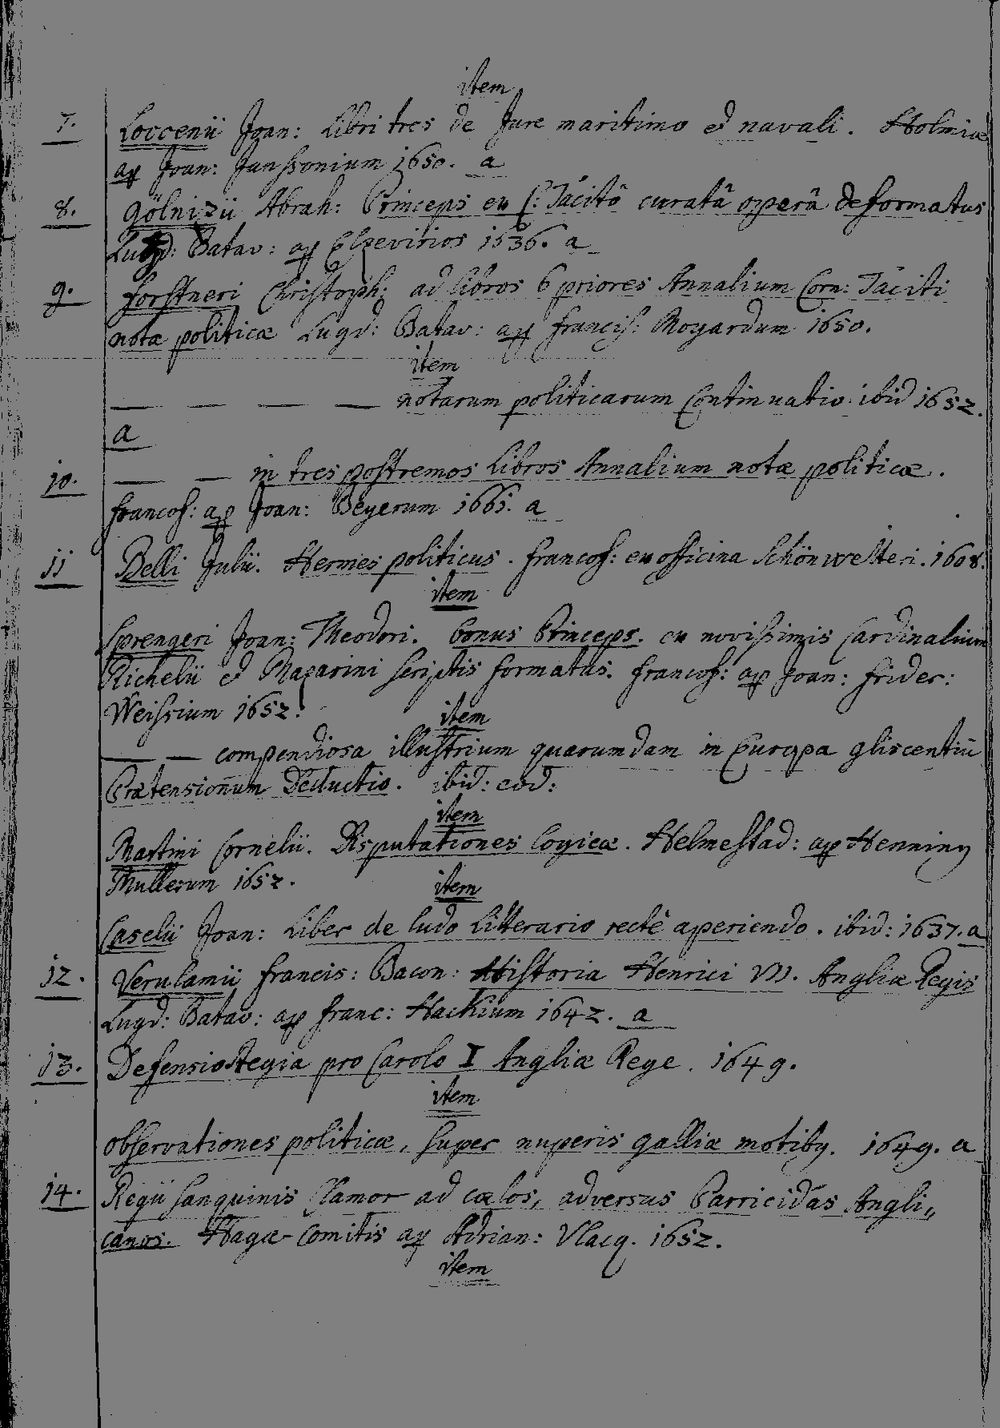 item
7. Loccenii Joan: Libri tres de Jure maritimo et navali. Holmiæ
ap Joan: Janssonium 1650. a
8. Gölnizii Abrah: Princeps ex C: Tacitô curatâ operâ deformatus
Lugd: Batav: ap Elzevirios 1636. a
9. Forstneri Christoph: ad libros 6 priores Annalium Corn: Taciti
notæ politicæ Lugd: Batav: ap Francis: Moyardum 1650.
item
— — — — notarum politicarum Continuatio ibid 1652.
a
10. — — in tres postremos libros Annalium notæ politicæ.
Francof: ap Joan: Beyerum 1661. a
11 Belli Julii. Hermes politicus. Francof: ex officina Schönwetteri. 1608.
item
Sprengeri Joan: Theodori. Bonus Princeps. ex novissimis Cardinalium
Richelii et Mazarini scriptis formatus. Francof: ap Joan: Frider:
Weissium 1652.
item
— — compendiosa illustrium quarumdam in Europa gliscentiū
Prætensionum Deductio. ibid: eod:
item
Martini Cornelii. Disputationes Logicæ. Helmestad: ap Henning
Mullerum 1652.
item
Caselii Joan: Liber de ludo Litterario rectè aperiendo. ibid: 1637. a
12. Verulamii Francis: Bacon: Historia Henrici VII. Angliæ Regis
Lugd: Batav: ap Franc: Hackium 1642. a
13. Defensio Regia pro Carolo I Angliæ Rege. 1649.
item
Observationes politicæ, super nuperis galliæ motiby. 1649. a
14. Regii Sanguinis Clamor ad cœlos, adversus Parricidas Angli„
canos. Hagæ-Comitis ap Adrian: Vlacq. 1652.
item